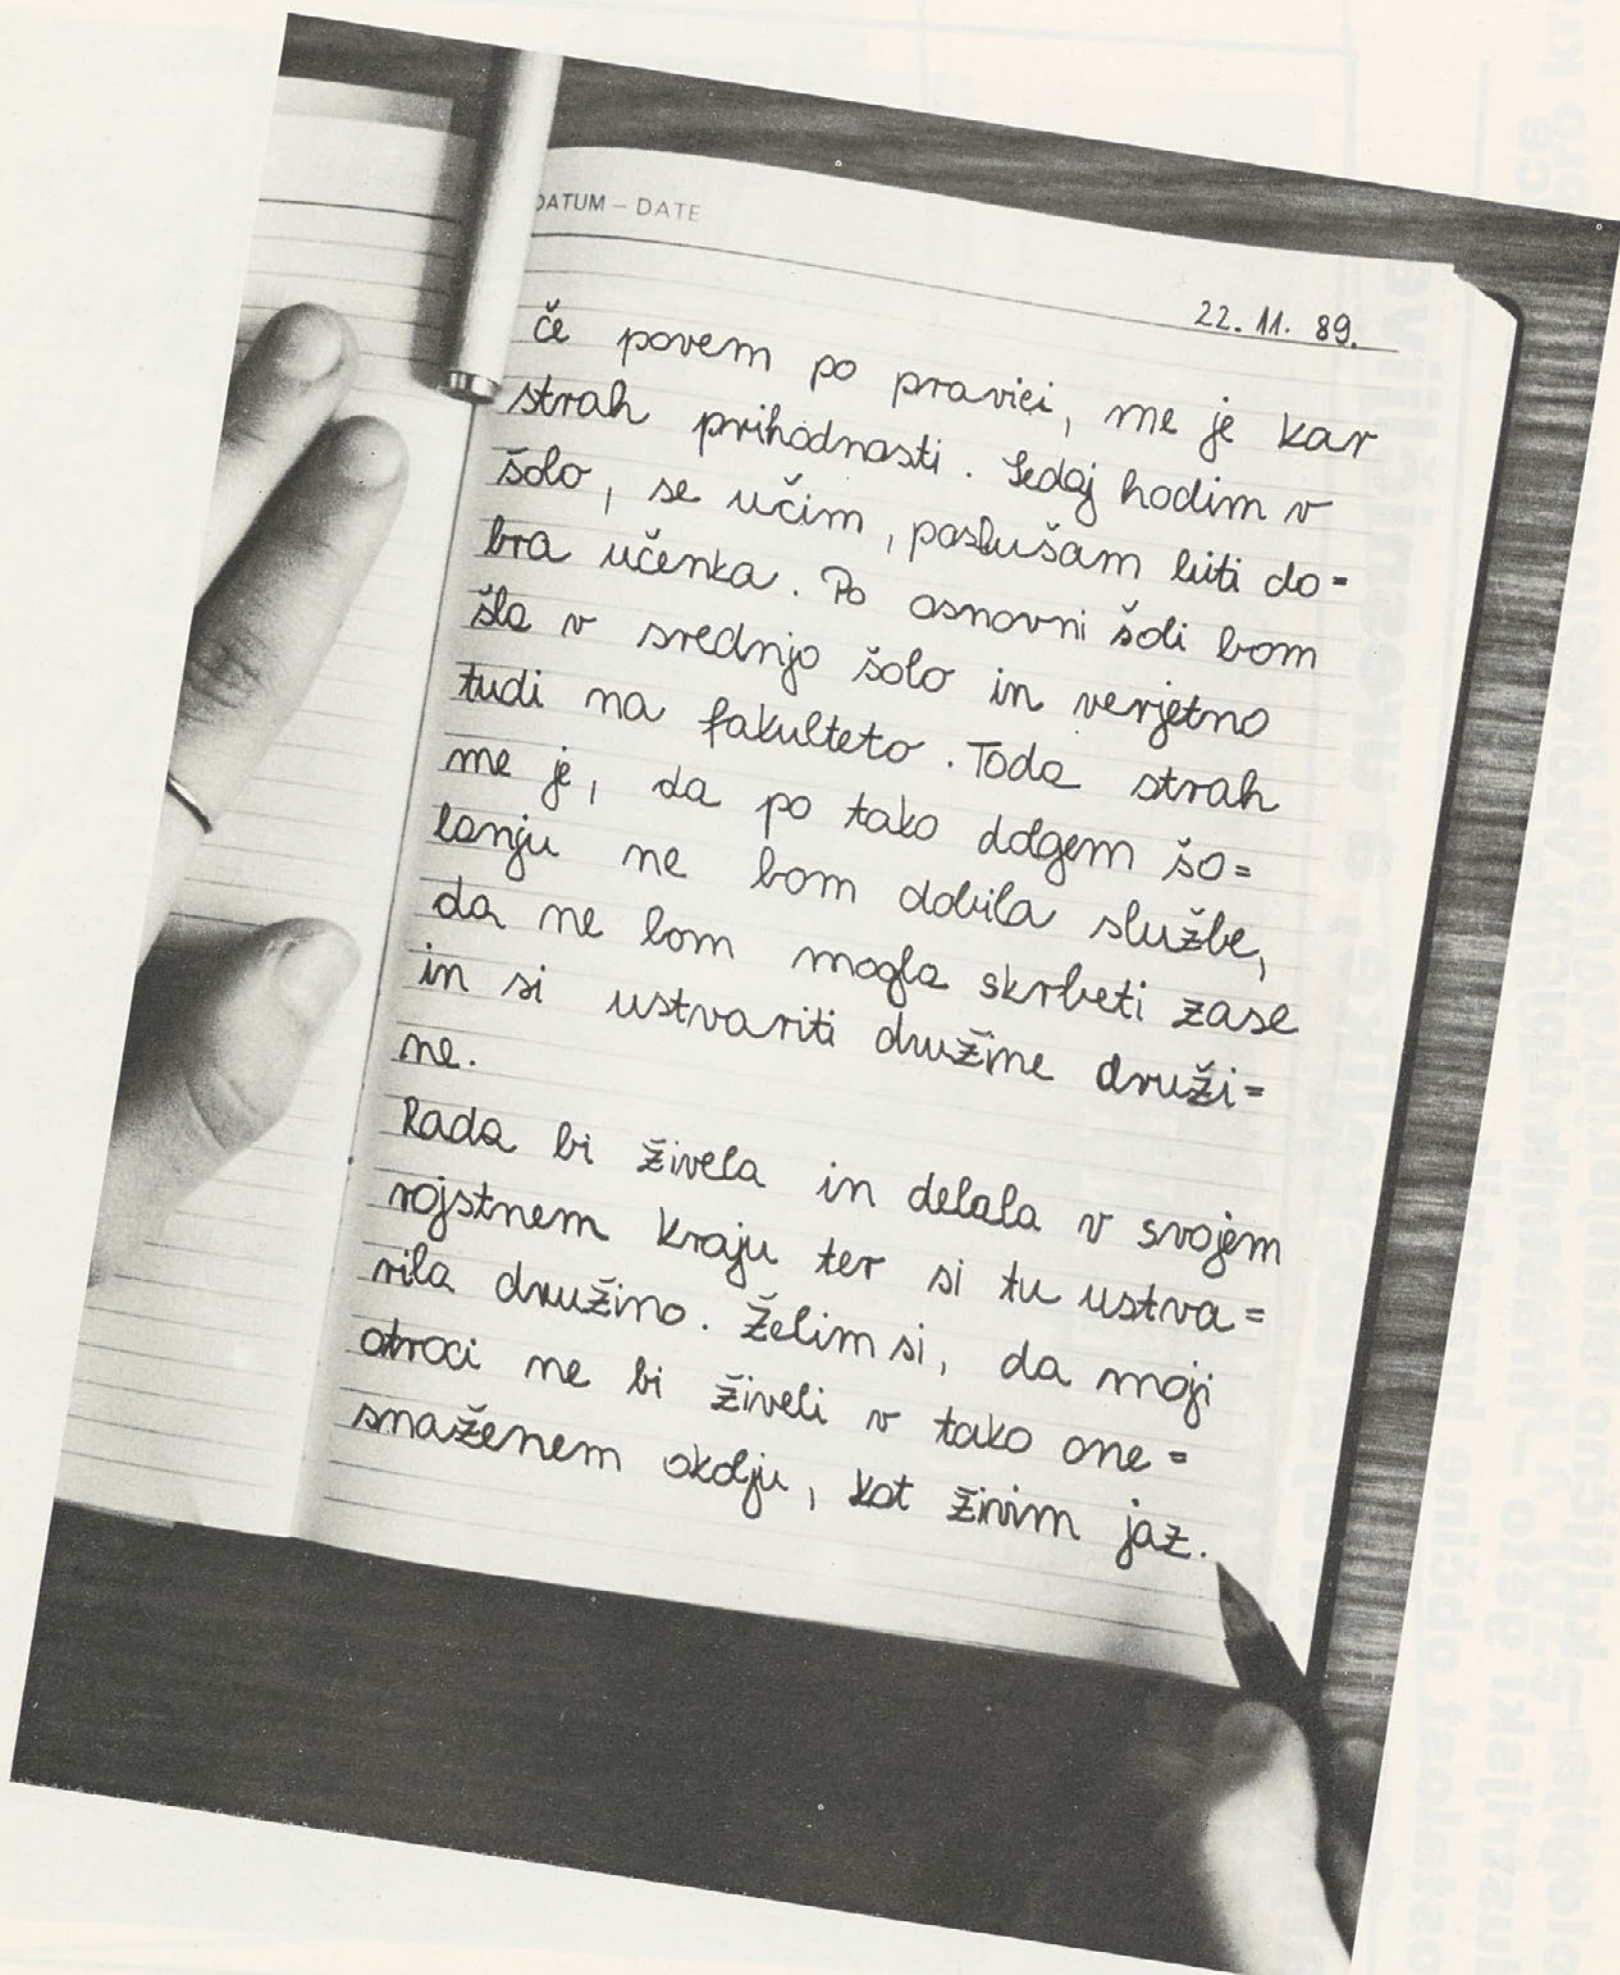 DATUM – DATE
22. 11. 89.
če povem po pravici, me je kar
strah prihodnosti. Sedaj hodim v
šolo, se učim, poslušam biti do=
bra učenka. Po osnovni šoli bom
šla v srednjo šolo in verjetno
tudi na fakulteto. Toda strah
me je, da po tako dolgem šo=
lanju ne bom dobila službe,
da ne bom mogla skrbeti zase
in si ustvariti družine druži=
ne.
Rada bi živela in delala v svojem
rojstnem kraju ter si tu ustva=
rila družino. Želim si, da moji
otroci ne bi živeli v tako one=
snaženem okolju, kot živim jaz.